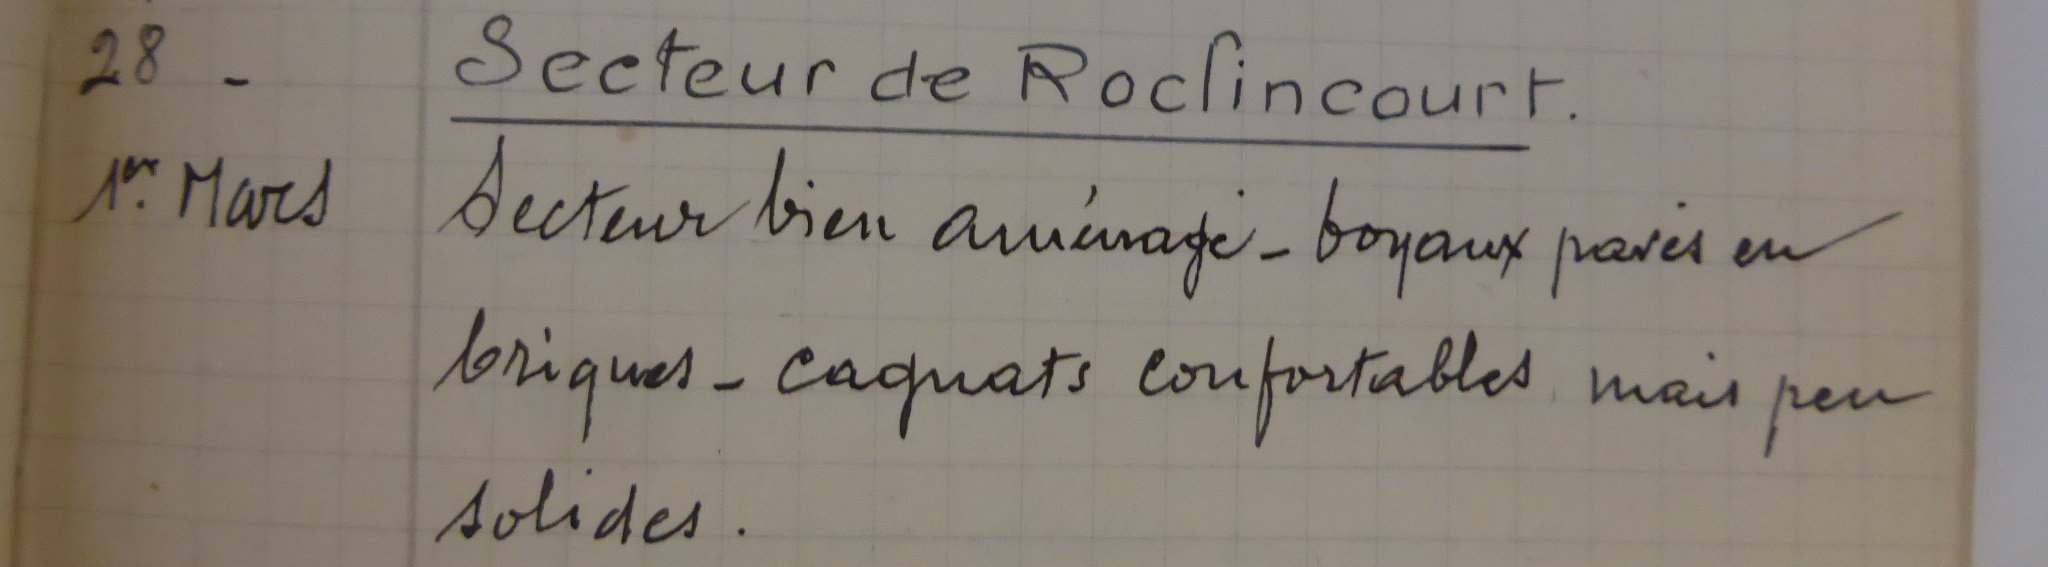 28 - Secteur de Roclincourt.
1er. Mars Secteur bien aménagé - boyaux pavés en
briques - cagnats confortables mais peu
solides.